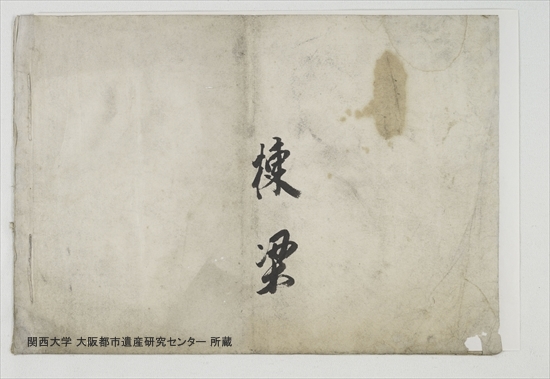 棟梁
関西大学 大阪都市遺産研究センター 所蔵